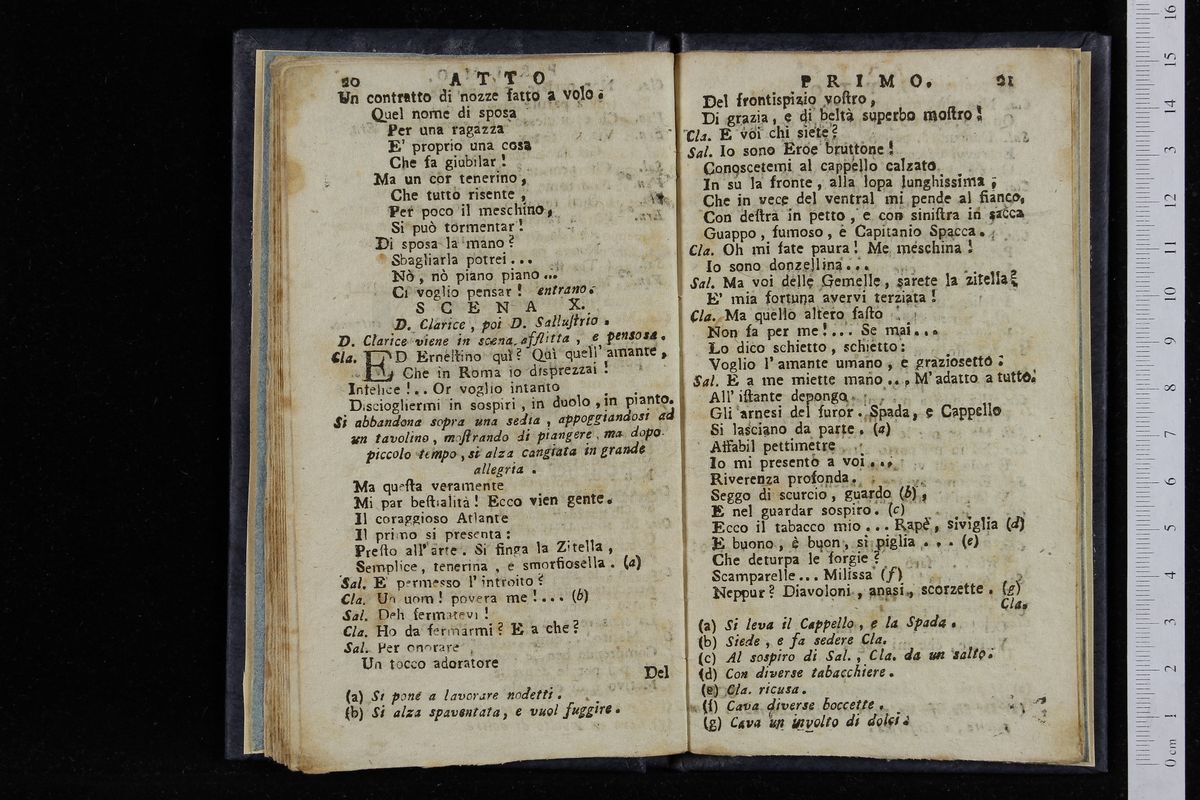 20 ATTO
Un contratto di nozze fatto a volo.
Quel nome di sposa
Per una ragazza
E' proprio una cosa
Che fa giubilar!
Ma un cor tenerino,
Che tutto risente,
Per poco il meschino,
Si può tormentar!
Di sposa la mano?
Sbagliarla potrei...
Nò, nò piano piano...
Ci voglio pensar! entrano.
SCENA X.
D. Clarice, poi D. Salluſtrio.
D. Clarice viene in scena afflitta, e pensosa.
Cla. ED Erneſtino quì? Quì quell' amante,
Che in Roma io disprezzai!
Infelice!.. Or voglio intanto
Disciogliermi in sospiri, in duolo, in pianto.
Si abbandona sopra una sedia, appoggiandosi ad
un tavolino, moſtrando di piangere, ma dopo
piccolo tempo, si alza cangiata in grande
allegria.
Ma queſta veramente
Mi par beſtialità! Ecco vien gente.
Il coraggioso Atlante
Il primo si presenta:
Preſto all' arte. Si finga la Zitella,
Semplice, tenerina, e smorfiosella. (a)
Sal. E' permesso l'introito?
Cla. Un uom! povera me!... (b)
Sal. Deh fermatevi!
Cla. Ho da fermarmi? E a che?
Sal. Per onorare
Un tocco adoratore
Del
(a) Si pone a lavorare nodetti.
(b) Si alza spaventata, e vuol fuggire.
PRIMO. 21
Del frontispizio voſtro,
Di grazia, e di beltà superbo moſtro!
Cla. E voi chi siete?
Sal. Io sono Eroe bruttone!
Conoscetemi al cappello calzato
In su la fronte, alla lopa lunghissima,
Che in vece del ventral mi pende al fianco,
Con deſtra in petto, e con siniſtra in sacca
Guappo, fumoso, è Capitanio Spacca.
Cla. Oh mi fate paura! Me meschina!
Io sono donzellina...
Sal. Ma voi delle Gemelle, sarete la zitella?
E' mia fortuna avervi terziata!
Cla. Ma quello altero faſto
Non fa per me!... Se mai...
Lo dico schietto, schietto:
Voglio l'amante umano, e graziosetto:
Sal. E a me miette mano... M'adatto a tutto.
All' iſtante depongo
Gli arnesi del furor. Spada, e Cappello
Si lasciano da parte. (a)
Affabil pettimetre
Io mi presento a voi...
Riverenza profonda.
Seggo di scurcio, guardo (b),
E nel guardar sospiro. (c)
Ecco il tabacco mio... Rapè, siviglia (d)
E buono, è buon, si piglia... (e)
Che deturpa le forgie?
Scamparelle... Milissa (f)
Neppur? Diavoloni, anasi, scorzette. (g)
Cla.
(a) Si leva il Cappello, e la Spada.
(b) Siede, e fa sedere Cla.
(c) Al sospiro di Sal., Cla. da un salto.
(d) Con diverse tabacchiere.
(e) Cla. ricusa.
(f) Cava diverse boccette.
(g) Cava un involto di dolci.
0 cm 1 2 3 4 5 6 7 8 9 10 11 12 3 14 15 16